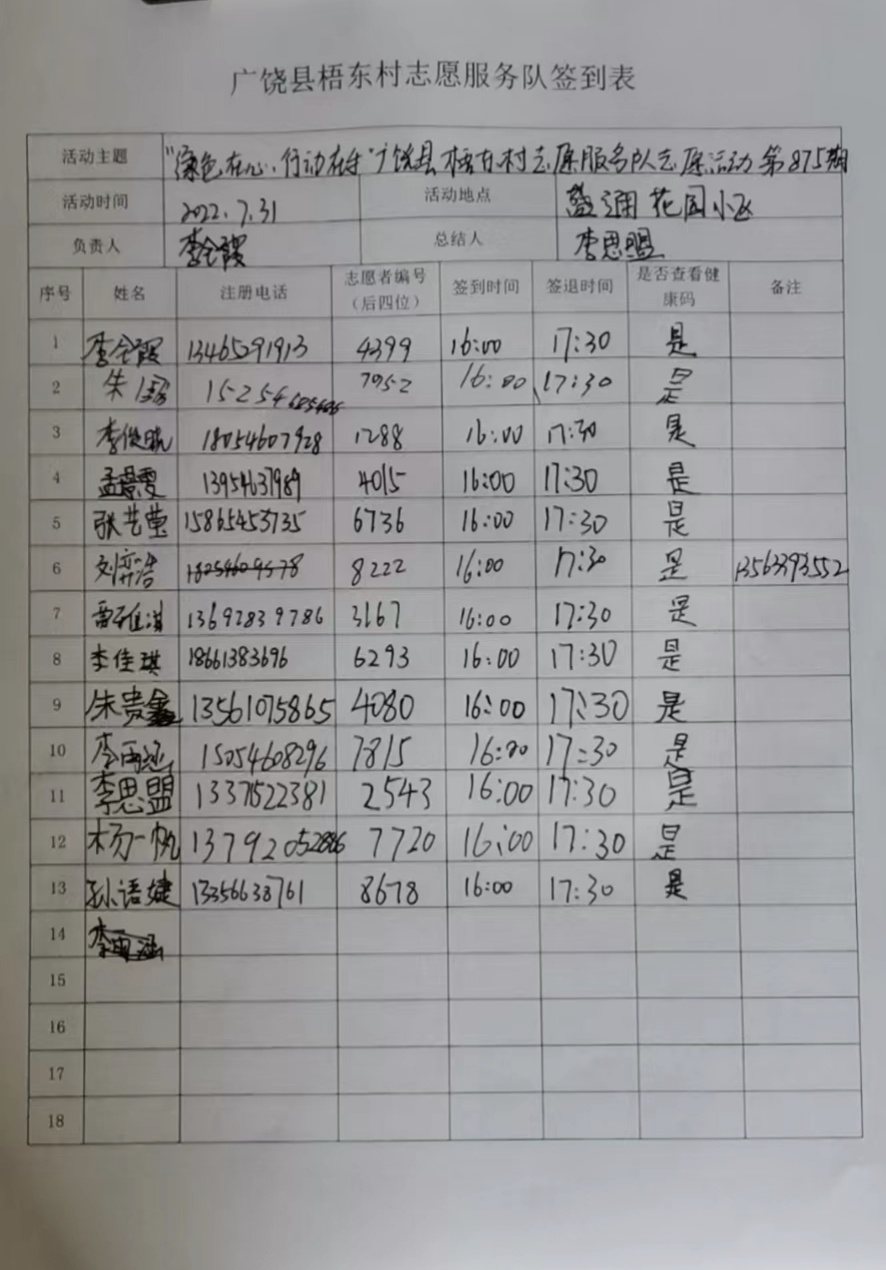 广饶县梧东村志愿服务队签到表
活动主题 "绿色在心、行动在手"广饶县梧东村志愿服务队志愿活动第875期
活动时间 2022.7.31 活动地点 盛通花园小区
负责人 李会霞 总结人 李思盟
序号 姓名 注册电话 志愿者编号（后四位） 签到时间 签退时间 是否查看健康码 备注
1 李会霞 13465291913 4399 16:00 17:30 是
2 朱 7952 16:00 17:30 是
3 李俊晓 18054607928 1288 16:00 17:30 是
4 孟景雯 13954637989 4015 16:00 17:30 是
5 张艺莹 15865453735 6736 16:00 17:30 是
6 刘弈浩 18254609578 8222 16:00 17:30 是 13563393552
7 13692839786 3167 16:00 17:30 是
8 李佳琪 18661383696 6293 16:00 17:30 是
9 朱贵鑫 13561075865 4080 16:00 17:30 是
10 李雨涵 15054608296 7815 16:00 17:30 是
11 李思盟 13371522381 2543 16:00 17:30 是
12 杨一帆 13792052886 7720 16:00 17:30 是
13 孙语婕 13356638761 8678 16:00 17:30 是
14 李雨涵
15
16
17
18